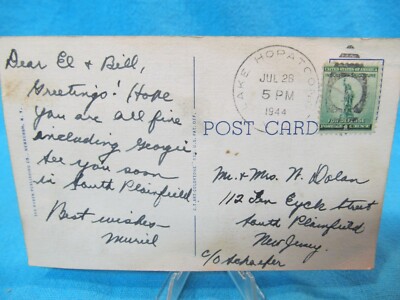 Dear El & Bill,
Greetings! Hope
you are all fine
including Georgie.
See you soon
in South Plainfield
Best wishes—
Muriel
LAKE HOPATCONG
JUL 28
5 PM
1944
POST CARD
Mr. & Mrs. W. Dolan
112 Ten Eyck Street
South Plainfield
New Jersey.
c/o Schaefer